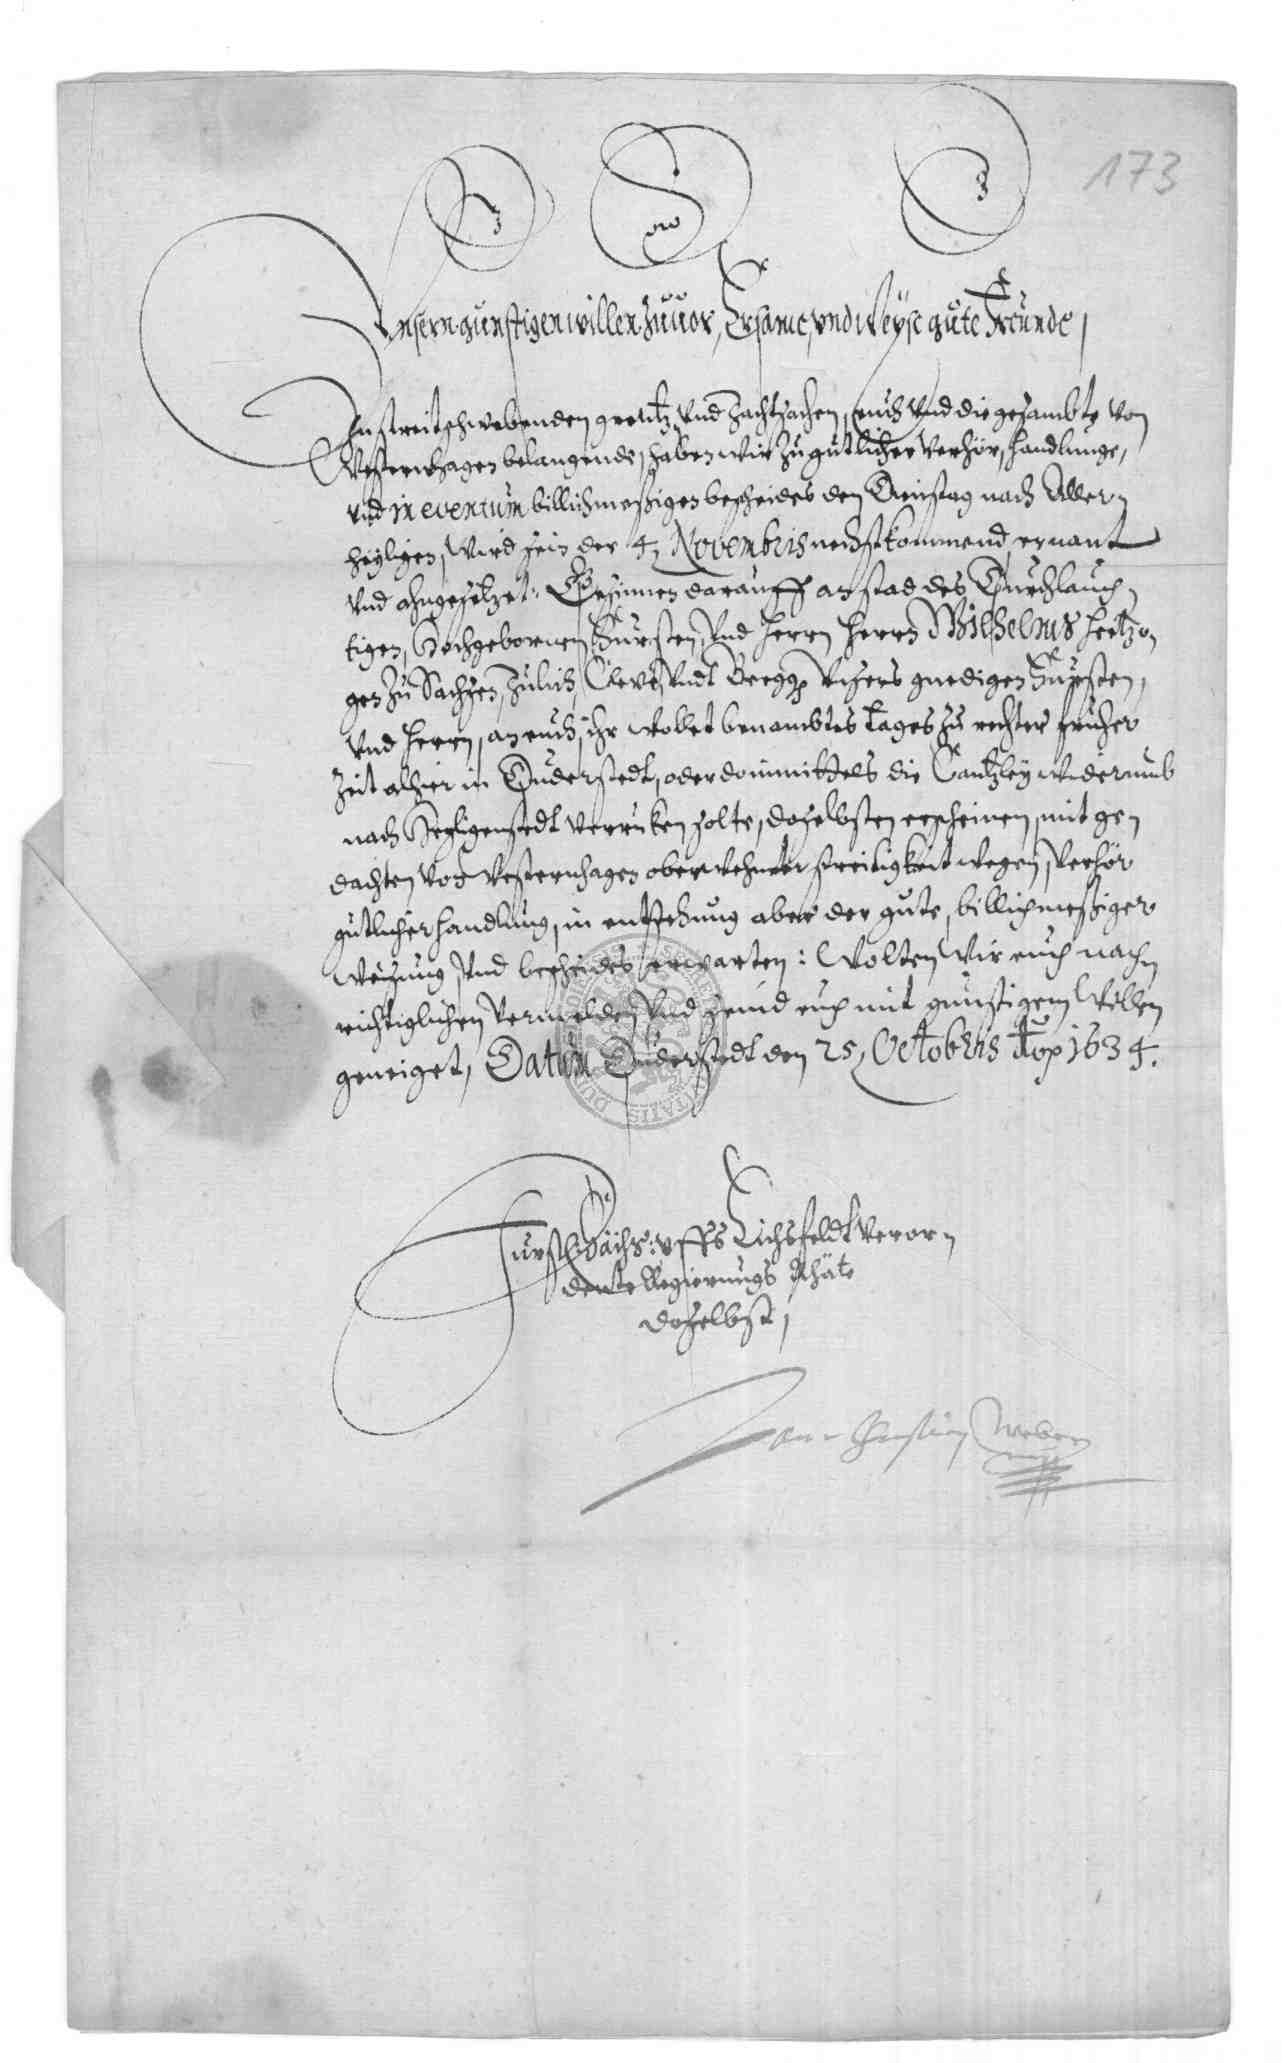 173
Unsern gunstigen willen zuuor, Ersame, vnd Weyse gute Freunde,
In streitschwebenden grentz vnd Jachtsachen, euch vnd die gesambte von
Westernhagen belangende, haben wir zu gutlicher verhör, handlunge,
vnd in eventum billichmeßigen bescheides den Dinstag nach Aller-
heyligen, wird sein der 4. Novembris nechstkommend, ernant
vnd ahngesetzet: Gesinnen darauff an stad des Durchlauch-
tigen, Hochgebornen Fursten, vnd Herrn Herrn Wilhelms Hertzo-
gen zu Sachsen, Julich, Cleve, vndt Bergk, vnsers gnedigen Fursten,
vnd Herrn, an euch, ihr wollet benambtes tages zu rechter fruher
Zeit alhier in Duderstedt, oder do inmittels die Cantzley widerumb
nach Heyligenstedt verrucken solte, doselbsten erscheinen, mit ge-
dachten von Westernhagen oberwehnter streitigkeit wegen, verhör
gutlicher handlung, in entstehung aber der gute, billichmeßiger
weisung, vnd bescheides erwarten: Wolten wir euch nach-
richtiglichen vermelden, vnd seind euch mit gunstigem willen
geneiget, Datum Duderstedt den 25, Octobris Ao 1634.
Furstl. Sächs: vffs Eichsfeldt veror-
dente Regierungs Rhäte
doselbst,
Weber